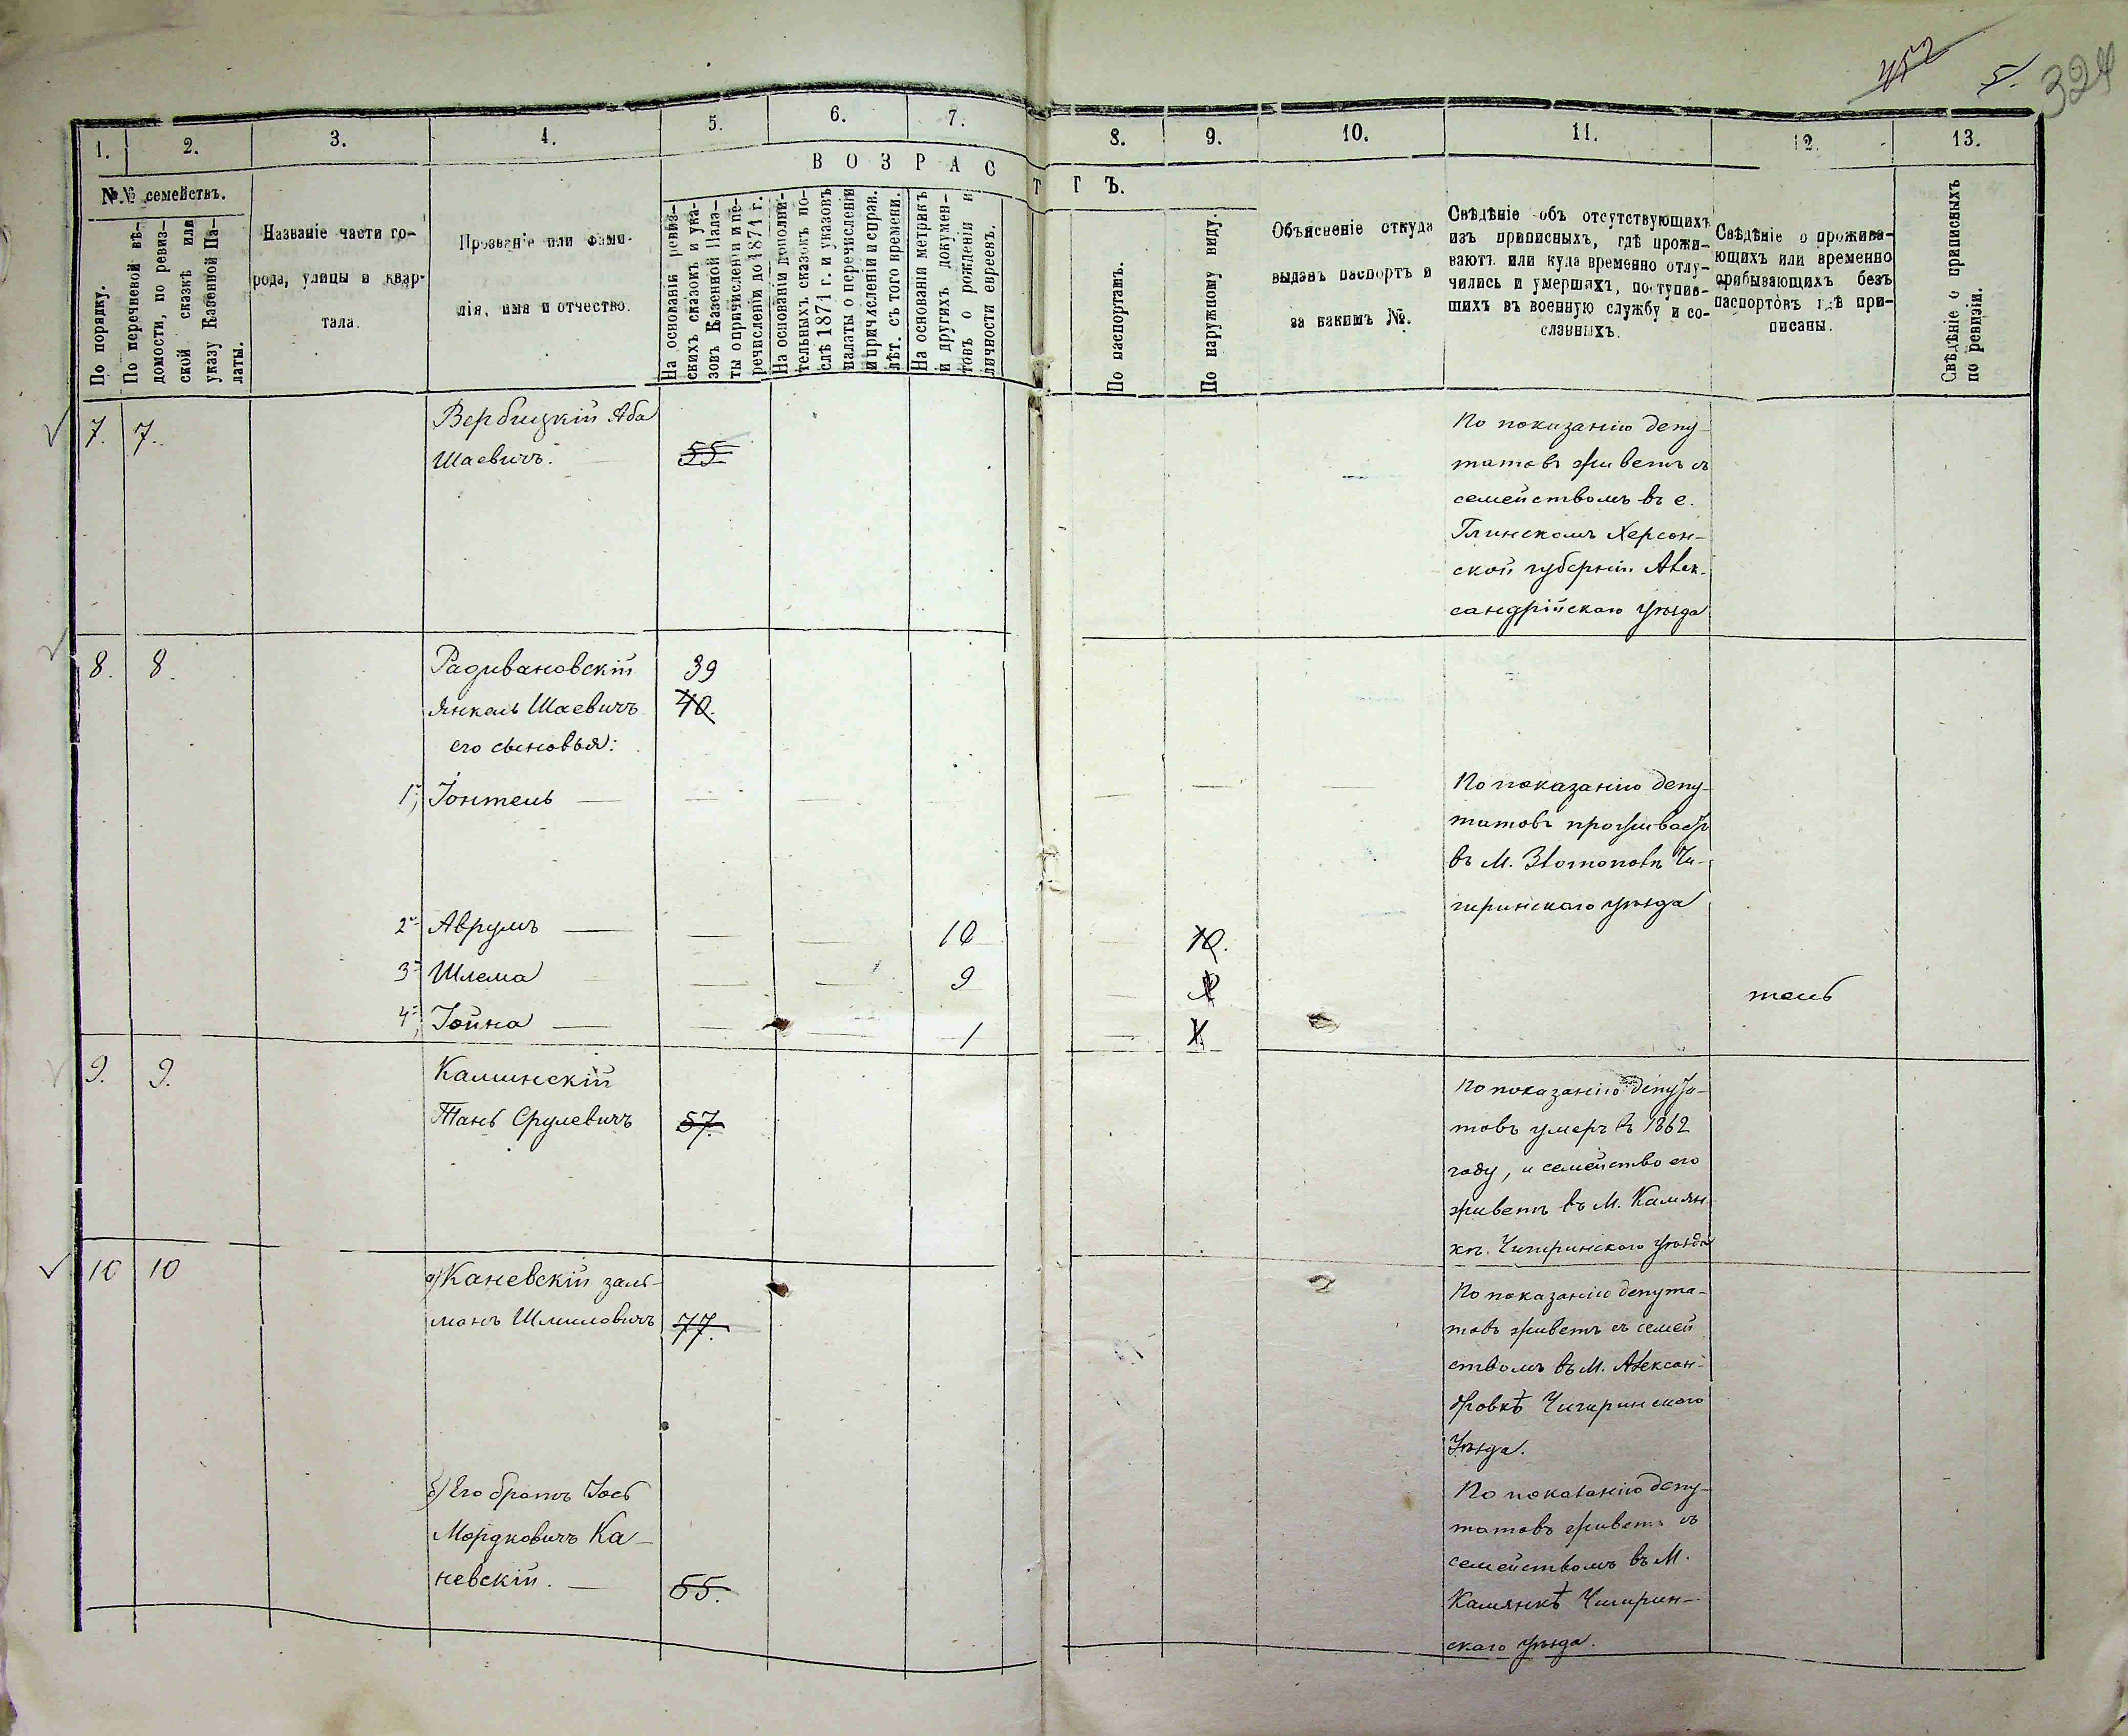 452
5.
324
1.
2.
3.
4.
5.
6.
7.
8.
9.
10.
11.
12.
13.
В О З Р А С Т Ъ.
№№ семействъ.
По порядку.
По перечневой вѣ-
домости, по ревиз-
ской сказкѣ или
указу Казенной Па-
латы.
Названіе части го-
рода, улицы и квар-
тала.
Прозваніе или фами-
лія, имя и отчество.
На основаніи ревиз-
скихъ сказокъ и ука-
зовъ Казенной Пала-
ты о причисленіи и пе-
речисленіи до 1871 г.
На основаніи дополни-
тельныхъ сказокъ по-
слѣ 1871 г. и указовъ
палаты о перечисленіи
и причисленіи и справ.
лѣт. съ того времени.
На основаніи метрикъ
и другихъ докумен-
товъ о рожденіи и
личности евреевъ.
По паспортамъ.
По наружному виду.
Объясненіе откуда
выданъ паспортъ и
за какимъ №.
Свѣдѣніе объ отсутствующихъ
изъ приписныхъ, гдѣ прожи-
ваютъ или куда временно отлу-
чились и умершихъ, поступив-
шихъ въ военную службу и со-
сланныхъ.
Свѣдѣніе о прожива-
ющихъ или временно
прибывающихъ безъ
паспортовъ гдѣ при-
писаны.
Свѣдѣніе о приписныхъ
по ревизіи.
7. 7. Вербицкій Аба
Шаевичъ. 55
По показанію депу-
татовъ живетъ съ
семействомъ въ с.
Глинскомъ Херсон-
ской губерніи Алек-
сандрійскаго уѣзда
8. 8. Радивановскій 39
Янкель Шаевичъ 40.
его сыновья:
1, Іонтель
По показанію депу-
татовъ проживаетъ
въ М. Златополѣ Чи-
гиринскаго уѣзда
2 Аврумъ 10 10.
3 Шлема 9
тель
4 Іойна 1 1
9. 9. Калинскій
Срулевичъ 57.
По показанію депута-
товъ умеръ въ 1862
году, и семейство его
живетъ въ М. Камян-
кѣ. Чигиринскаго уѣзда
10 10 а) Каневскій Заль-
манъ Шмиловичъ 77.
По показанію депута-
товъ живетъ съ семей
ствомъ въ М. Алексан-
дровкѣ Чигиринскаго
Уѣзда.
б) Его братъ Іось
Мордковичъ Ка-
невскій. 55.
По показанію депу-
татовъ живетъ съ
семействомъ въ М.
Камянкѣ Чигирин-
скаго уѣзда.